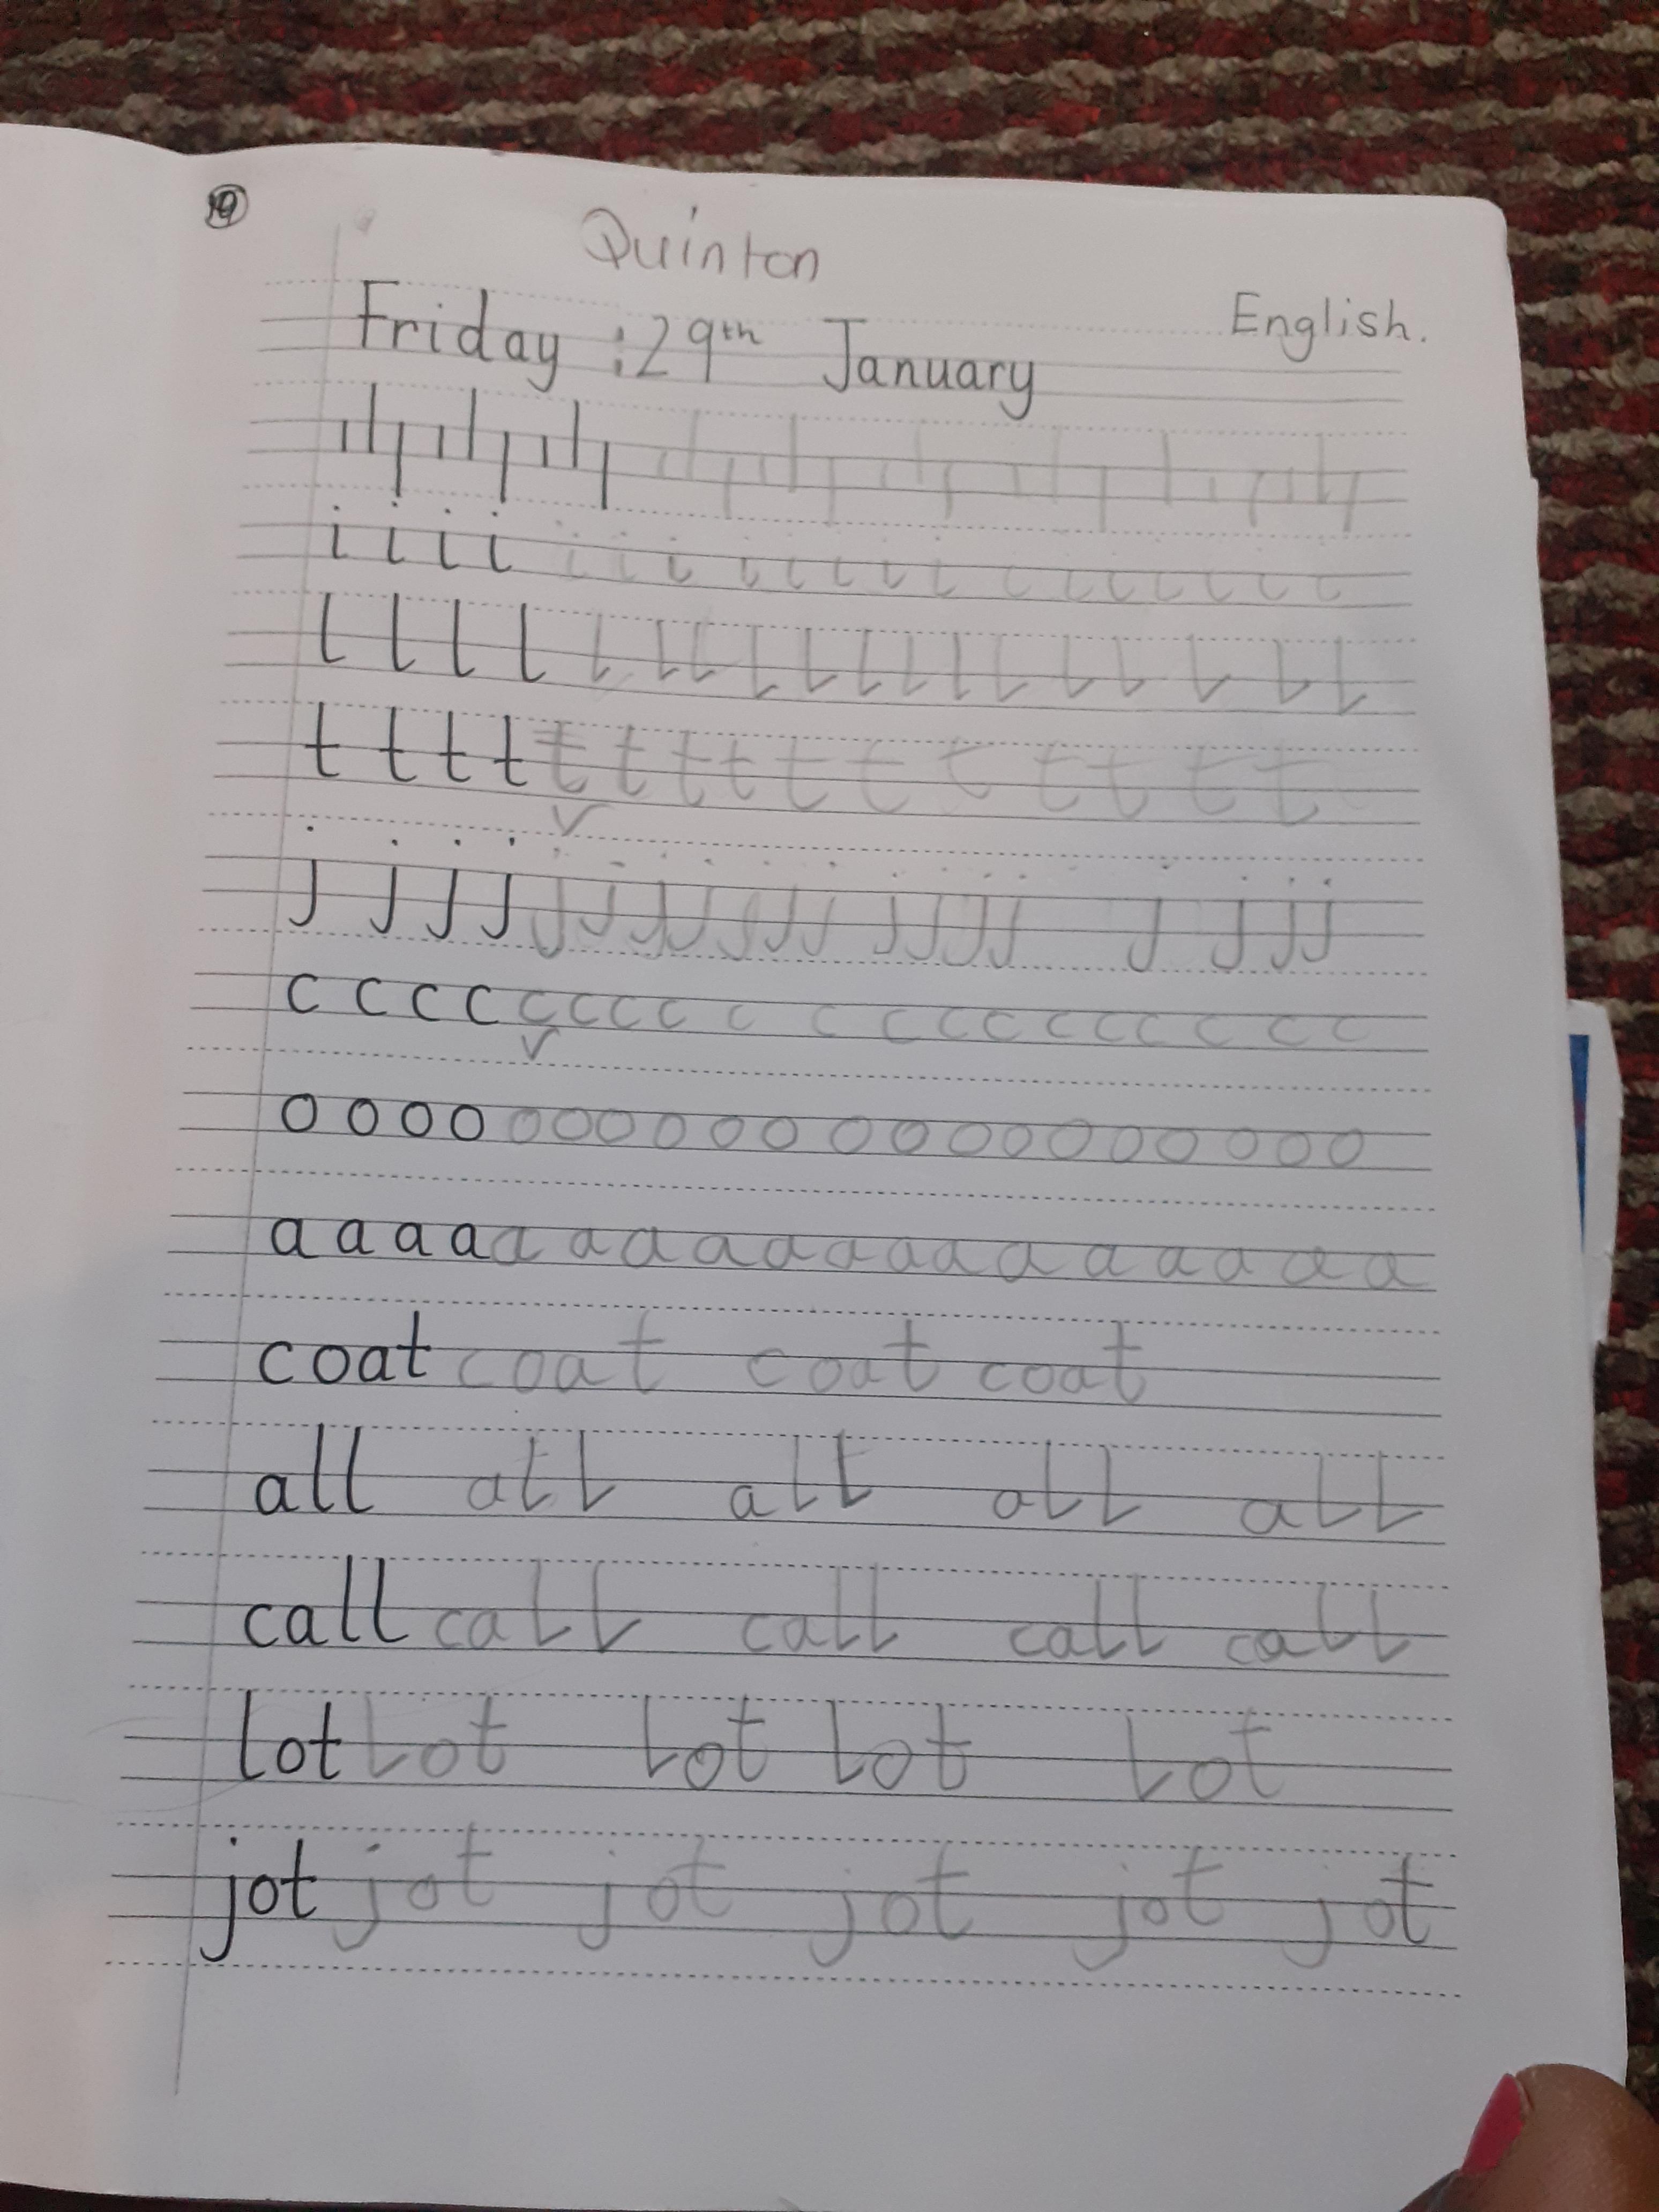 Quinton
English.
Friday : 29th January
i i i i i i i i i i i i i i i i i i i
l l l l l l l l l l l l l l l l l l
t t t t t t t t t t t t t t t
j j j j j j j j j j j j j j j j j j j
c c c c c c c c c c c c c c c c c c
o o o o o o o o o o o o o o o o o o
a a a a a a a a a a a a a a a a a
coat coat coat coat
all all all all all
call call call call call
lot lot lot lot lot
jot jot jot jot jot jot